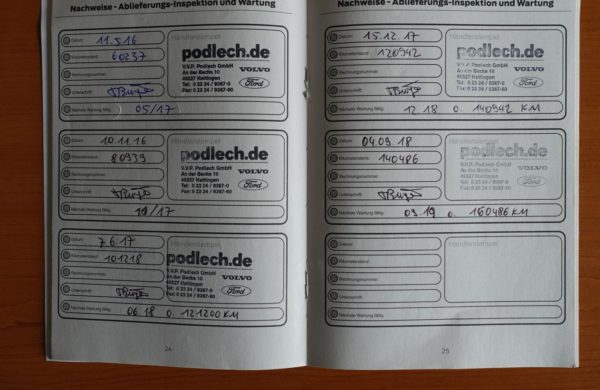 Nachweise - Ablieferungs-Inspektion und Wartung
Datum: 11.5.16
Kilometerstand: 60237
Rechnungsnummer:
Unterschrift:
Nächste Wartung fällig: 05/17
Händlerstempel
podlech.de
V.V.P. Podlech GmbH
An der Becke 10
45527 Hattingen
Tel: 0 23 24 / 9367-0
Fax: 0 23 24 / 9367-60
VOLVO
Ford
Datum: 10.11.16
Kilometerstand: 80939
Rechnungsnummer:
Unterschrift:
Nächste Wartung fällig: 11/17
Händlerstempel
podlech.de
V.V.P. Podlech GmbH
An der Becke 10
45527 Hattingen
Tel: 0 23 24 / 9367-0
Fax: 0 23 24 / 9367-60
VOLVO
Ford
Datum: 7.6.17
Kilometerstand: 101218
Rechnungsnummer:
Unterschrift:
Nächste Wartung fällig: 06.18 o. 121200 KM
Händlerstempel
podlech.de
V.V.P. Podlech GmbH
An der Becke 10
45527 Hattingen
Tel: 0 23 24 / 9367-0
Fax: 0 23 24 / 9367-60
VOLVO
Ford
24
Nachweise - Ablieferungs-Inspektion und Wartung
Datum: 15.12.17
Kilometerstand: 120942
Rechnungsnummer:
Unterschrift:
Nächste Wartung fällig: 12 18 o. 140942 KM
Händlerstempel
podlech.de
V.V.P. Podlech GmbH
An der Becke 10
45527 Hattingen
Tel: 0 23 24 / 9367-0
Fax: 0 23 24 / 9367-60
VOLVO
Ford
Datum: 04.09.18
Kilometerstand: 140486
Rechnungsnummer:
Unterschrift:
Nächste Wartung fällig: 09.19 o. 160486 KM
Händlerstempel
podlech.de
V.V.P. Podlech GmbH
An der Becke 10
45527 Hattingen
Tel: 0 23 24 / 9367-0
Fax: 0 23 24 / 9367-60
VOLVO
Ford
Datum:
Kilometerstand:
Rechnungsnummer:
Unterschrift:
Nächste Wartung fällig:
Händlerstempel
25